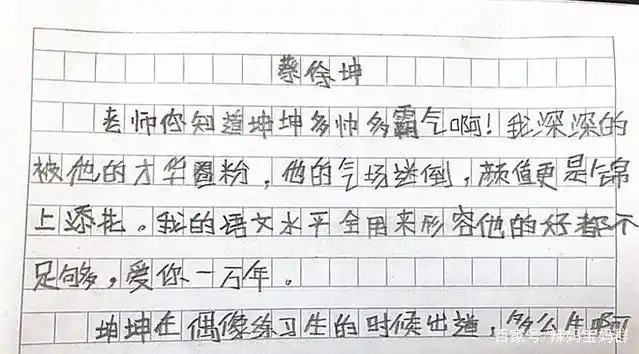 蔡徐坤
老师你知道坤坤多帅多霸气啊！我深深的
被他的才华圈粉，他的气场迷倒，颜值更是锦
上添花。我的语文水平全用来形容他的好都不
足够，爱你一万年。
坤坤在偶像练习生的时候出道，多么
百家号/辣妈宝妈群